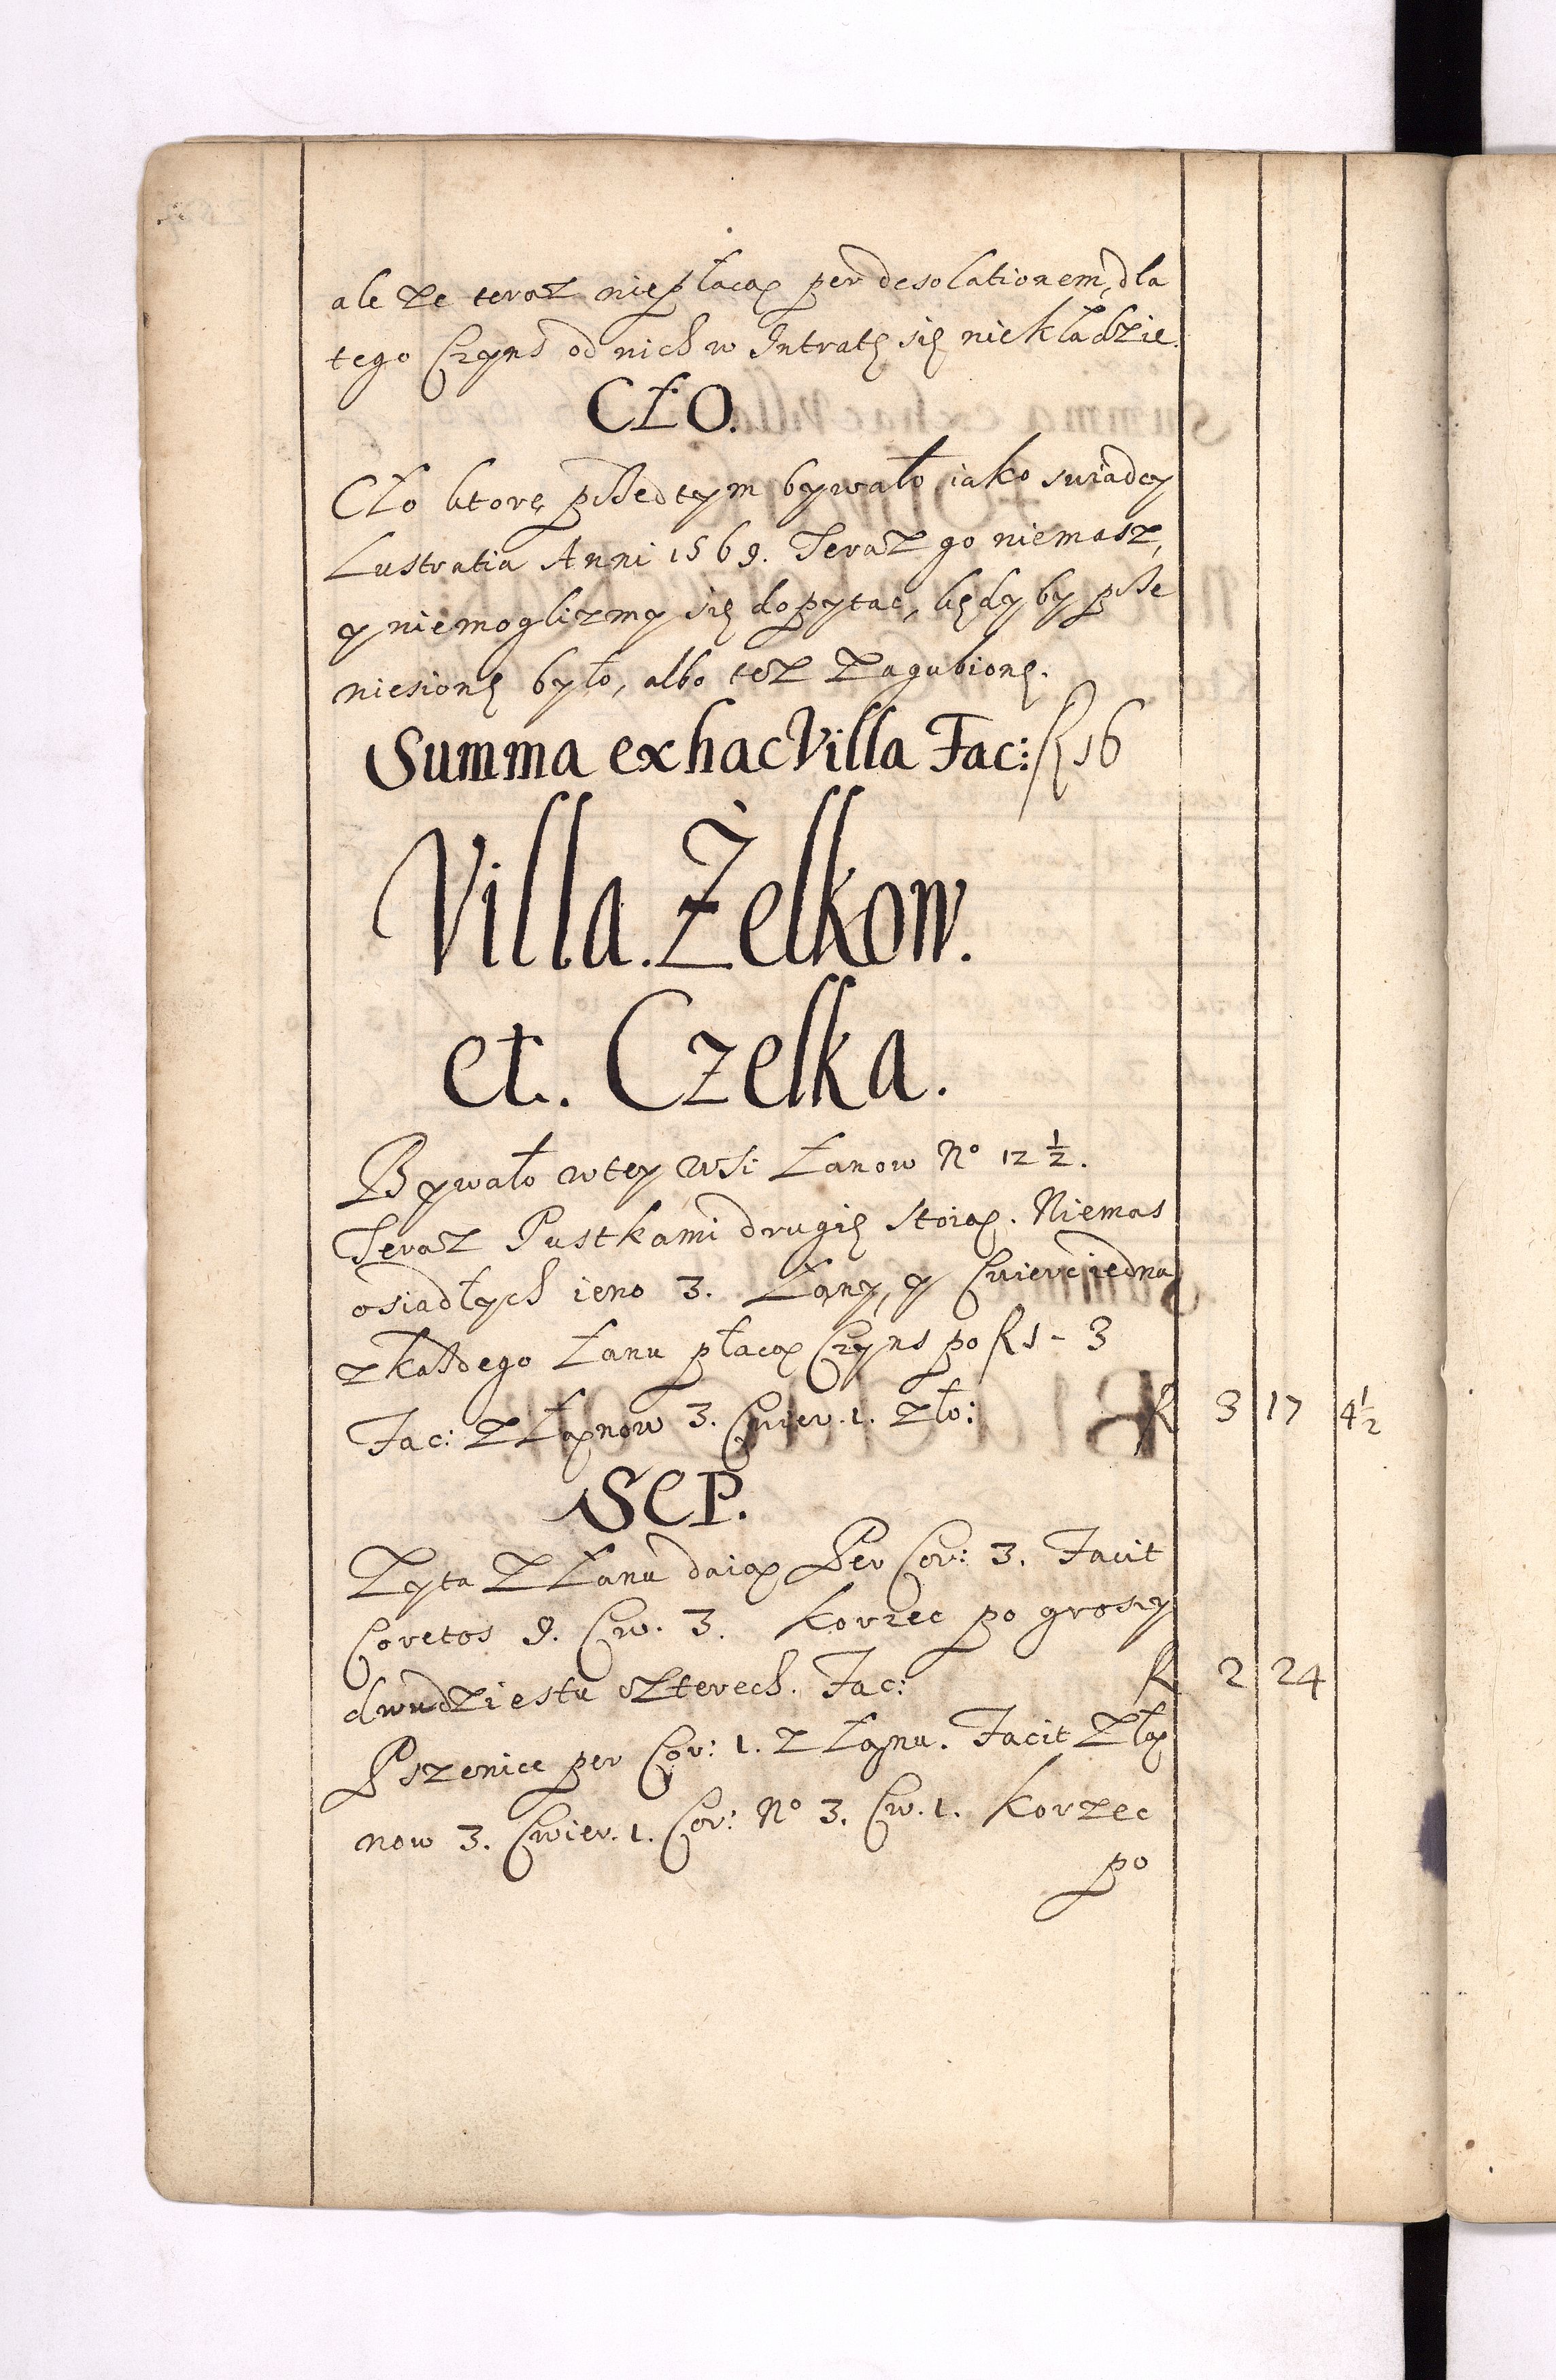 ale że teraz niepłacą per desolationem, dla
tego Czyns od nich w Intratę się niekładzie.
CŁO.
Cło ktorę przedtym bywało iako swiadcy
Lustratia Anni 1569. Teraz go niemasz,
y niemoglizmy się dopytac, kędy by prze
niesionę było, albo tez zagubionę.
Summa ex hac Villa Fac: R 16
Villa. Żelkow.
et. Czelka.
Bywało wtey wsi Łanow No 12 1/2.
Teraz Pustkami drugię stoią. Niemas
osiadłych ieno 3. Łany, y Cwierc iedna
zkażdego Łanu płacą Czyns po R 1 - 3
Fac: z Łanow 3. Cwier. 1. Zło: R 3 17 4 1/2
SEP.
Zyta z Łanu daią Per Cor: 3. Facit
Coretos 9. Cw. 3. Korzec po groszy
dwudziestu czterech. Fac: R 2 24
Pszenice per Cor: 1. z Łanu. Facit z Ła
now 3. Cwier. 1. Cor: No 3. Cw. 1. Korzec
po